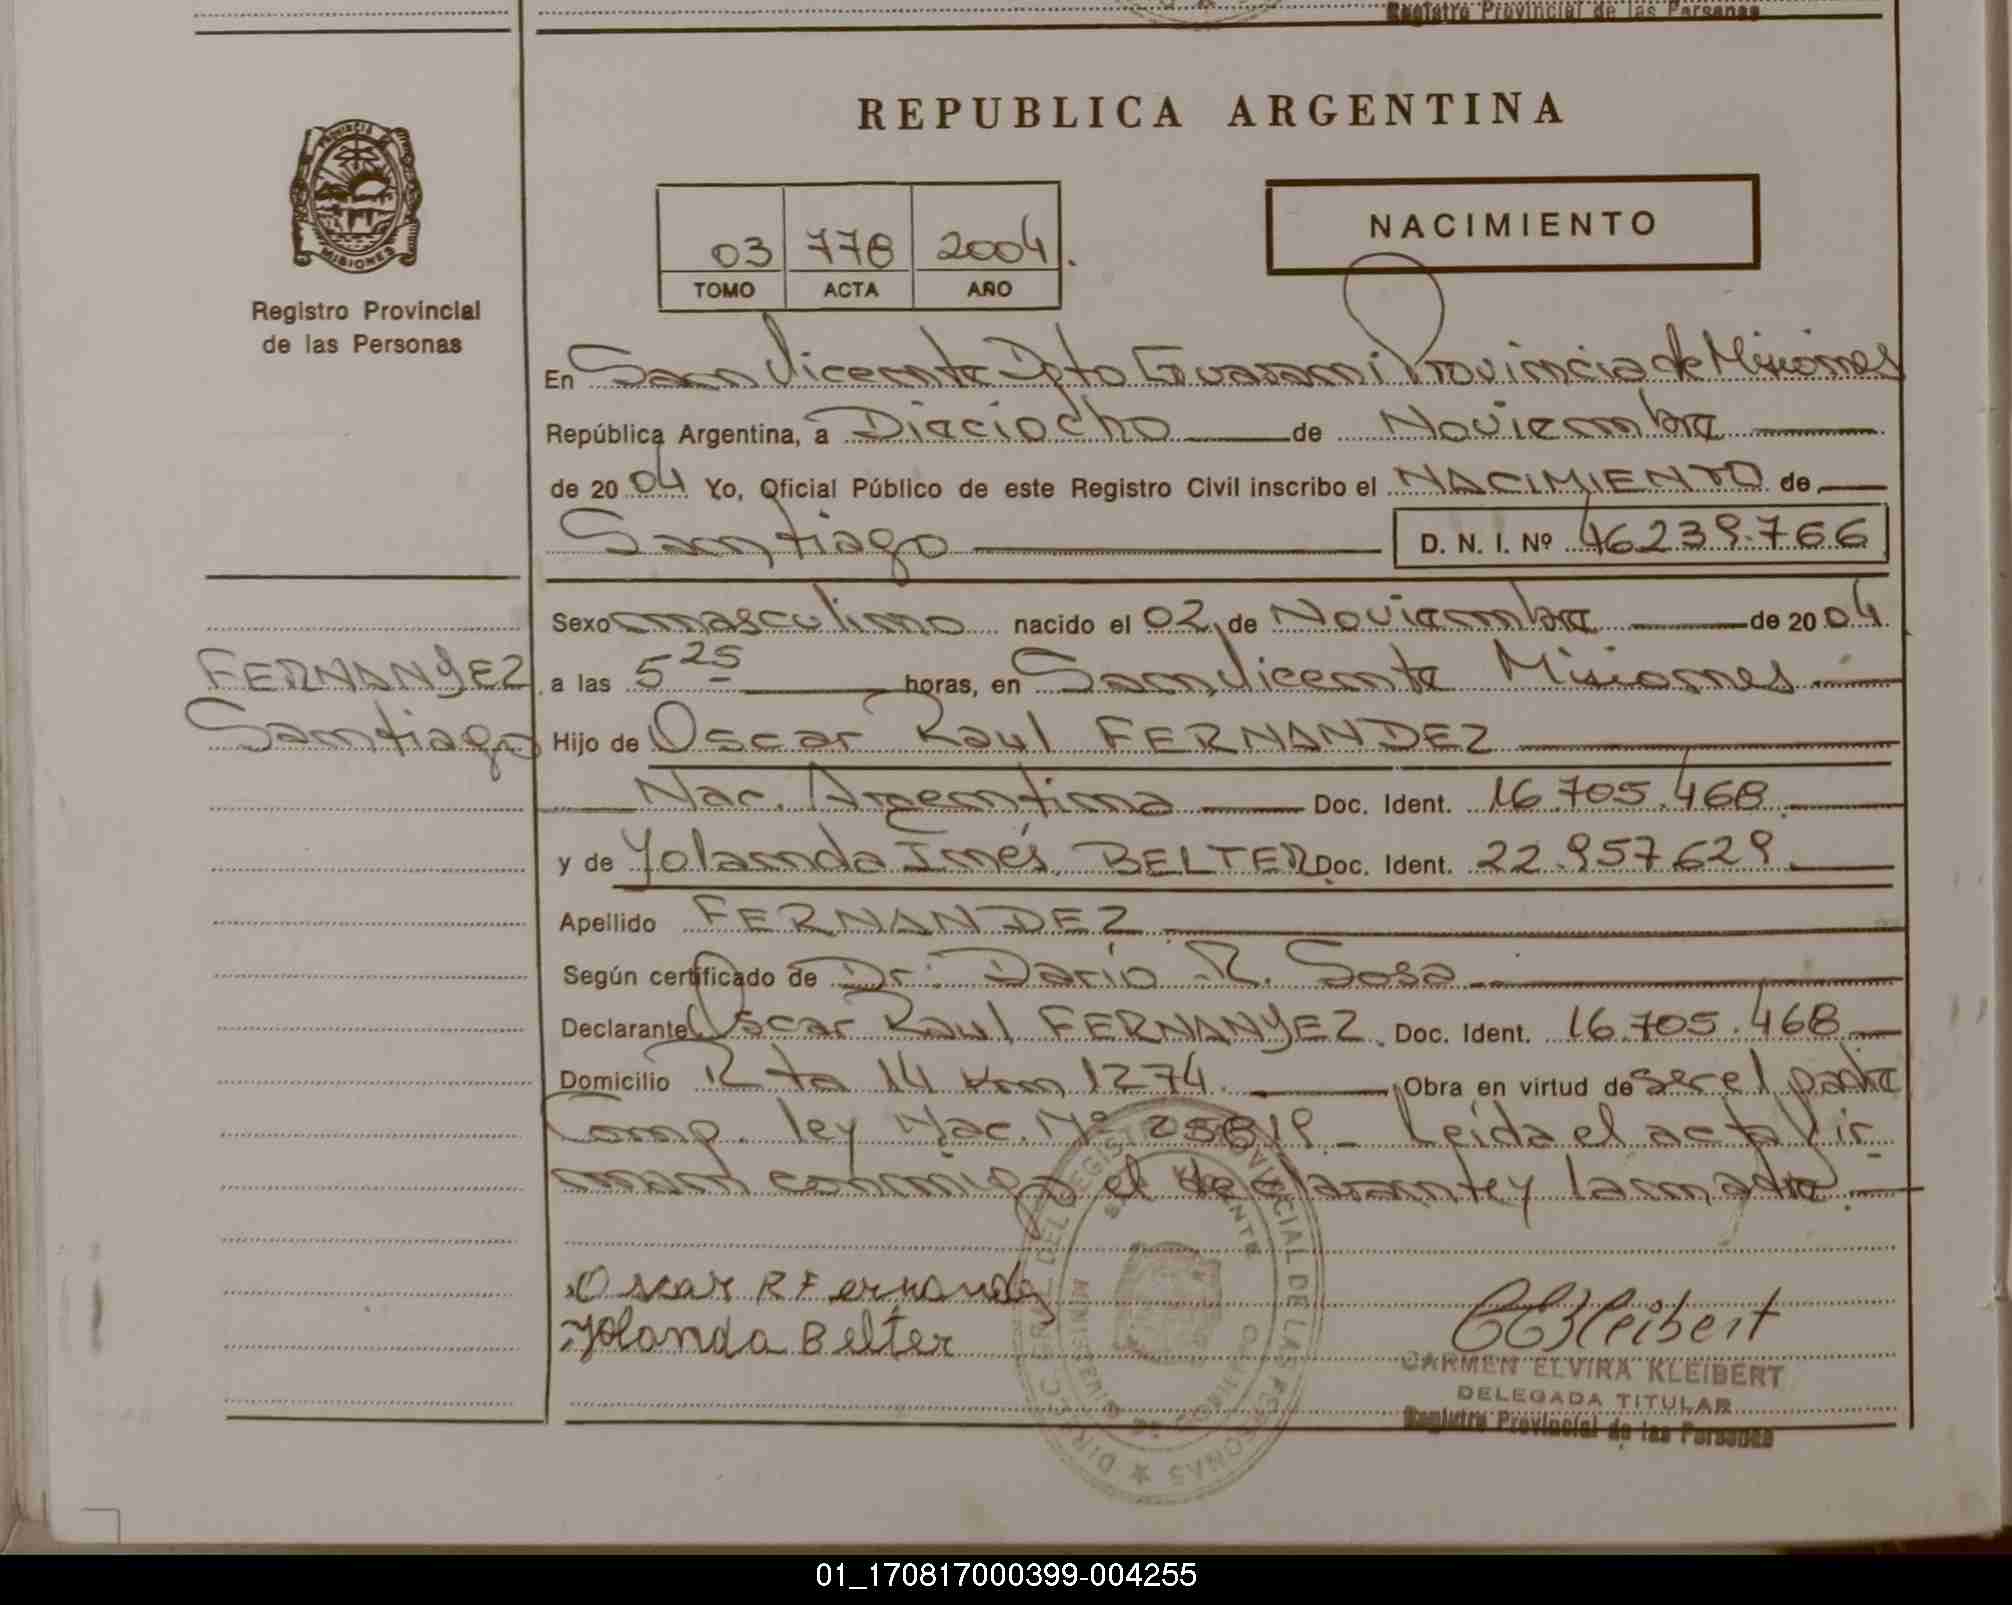 Registro Provincial de las Personas
REPUBLICA ARGENTINA
PROVINCIA
MISIONES
Registro Provincial
de las Personas
03 778 2004.
TOMO ACTA AÑO
NACIMIENTO
En San Vicente Dpto Guaraní Provincia de Misiones
República Argentina, a Dieciocho de Noviembre
de 2004 Yo, Oficial Público de este Registro Civil inscribo el NACIMIENTO de
Santiago D. N. I. Nº 46239.766
Sexo masculino nacido el 02 de Noviembre de 2004
FERNANDEZ
Santiago
a las 5 25 horas, en San Vicente Misiones
Hijo de Oscar Raul FERNANDEZ
Nac. Argentina Doc. Ident. 16.705.468
y de Yolanda Inés BELTER Doc. Ident. 22.957.629
Apellido FERNANDEZ
Según certificado de Dr. Darío R. Sosa
Declarante Oscar Raul FERNANDEZ. Doc. Ident. 16.705.468
Domicilio R ta 14 Km 1274. Obra en virtud de ser el padre
Comp. ley Nac. Nº 25819 - Leída el acta fir
man conmigo el declarante y la madre.
Oscar R Fernandez
Yolanda Belter
CEKleibert
CARMEN ELVIRA KLEIBERT
DELEGADA TITULAR
Registro Provincial de las Personas
DIREC. GRAL. DEL REGISTRO PROVINCIAL DE LAS PERSONAS
MINISTERIO DE GOBIERNO
01_170817000399-004255